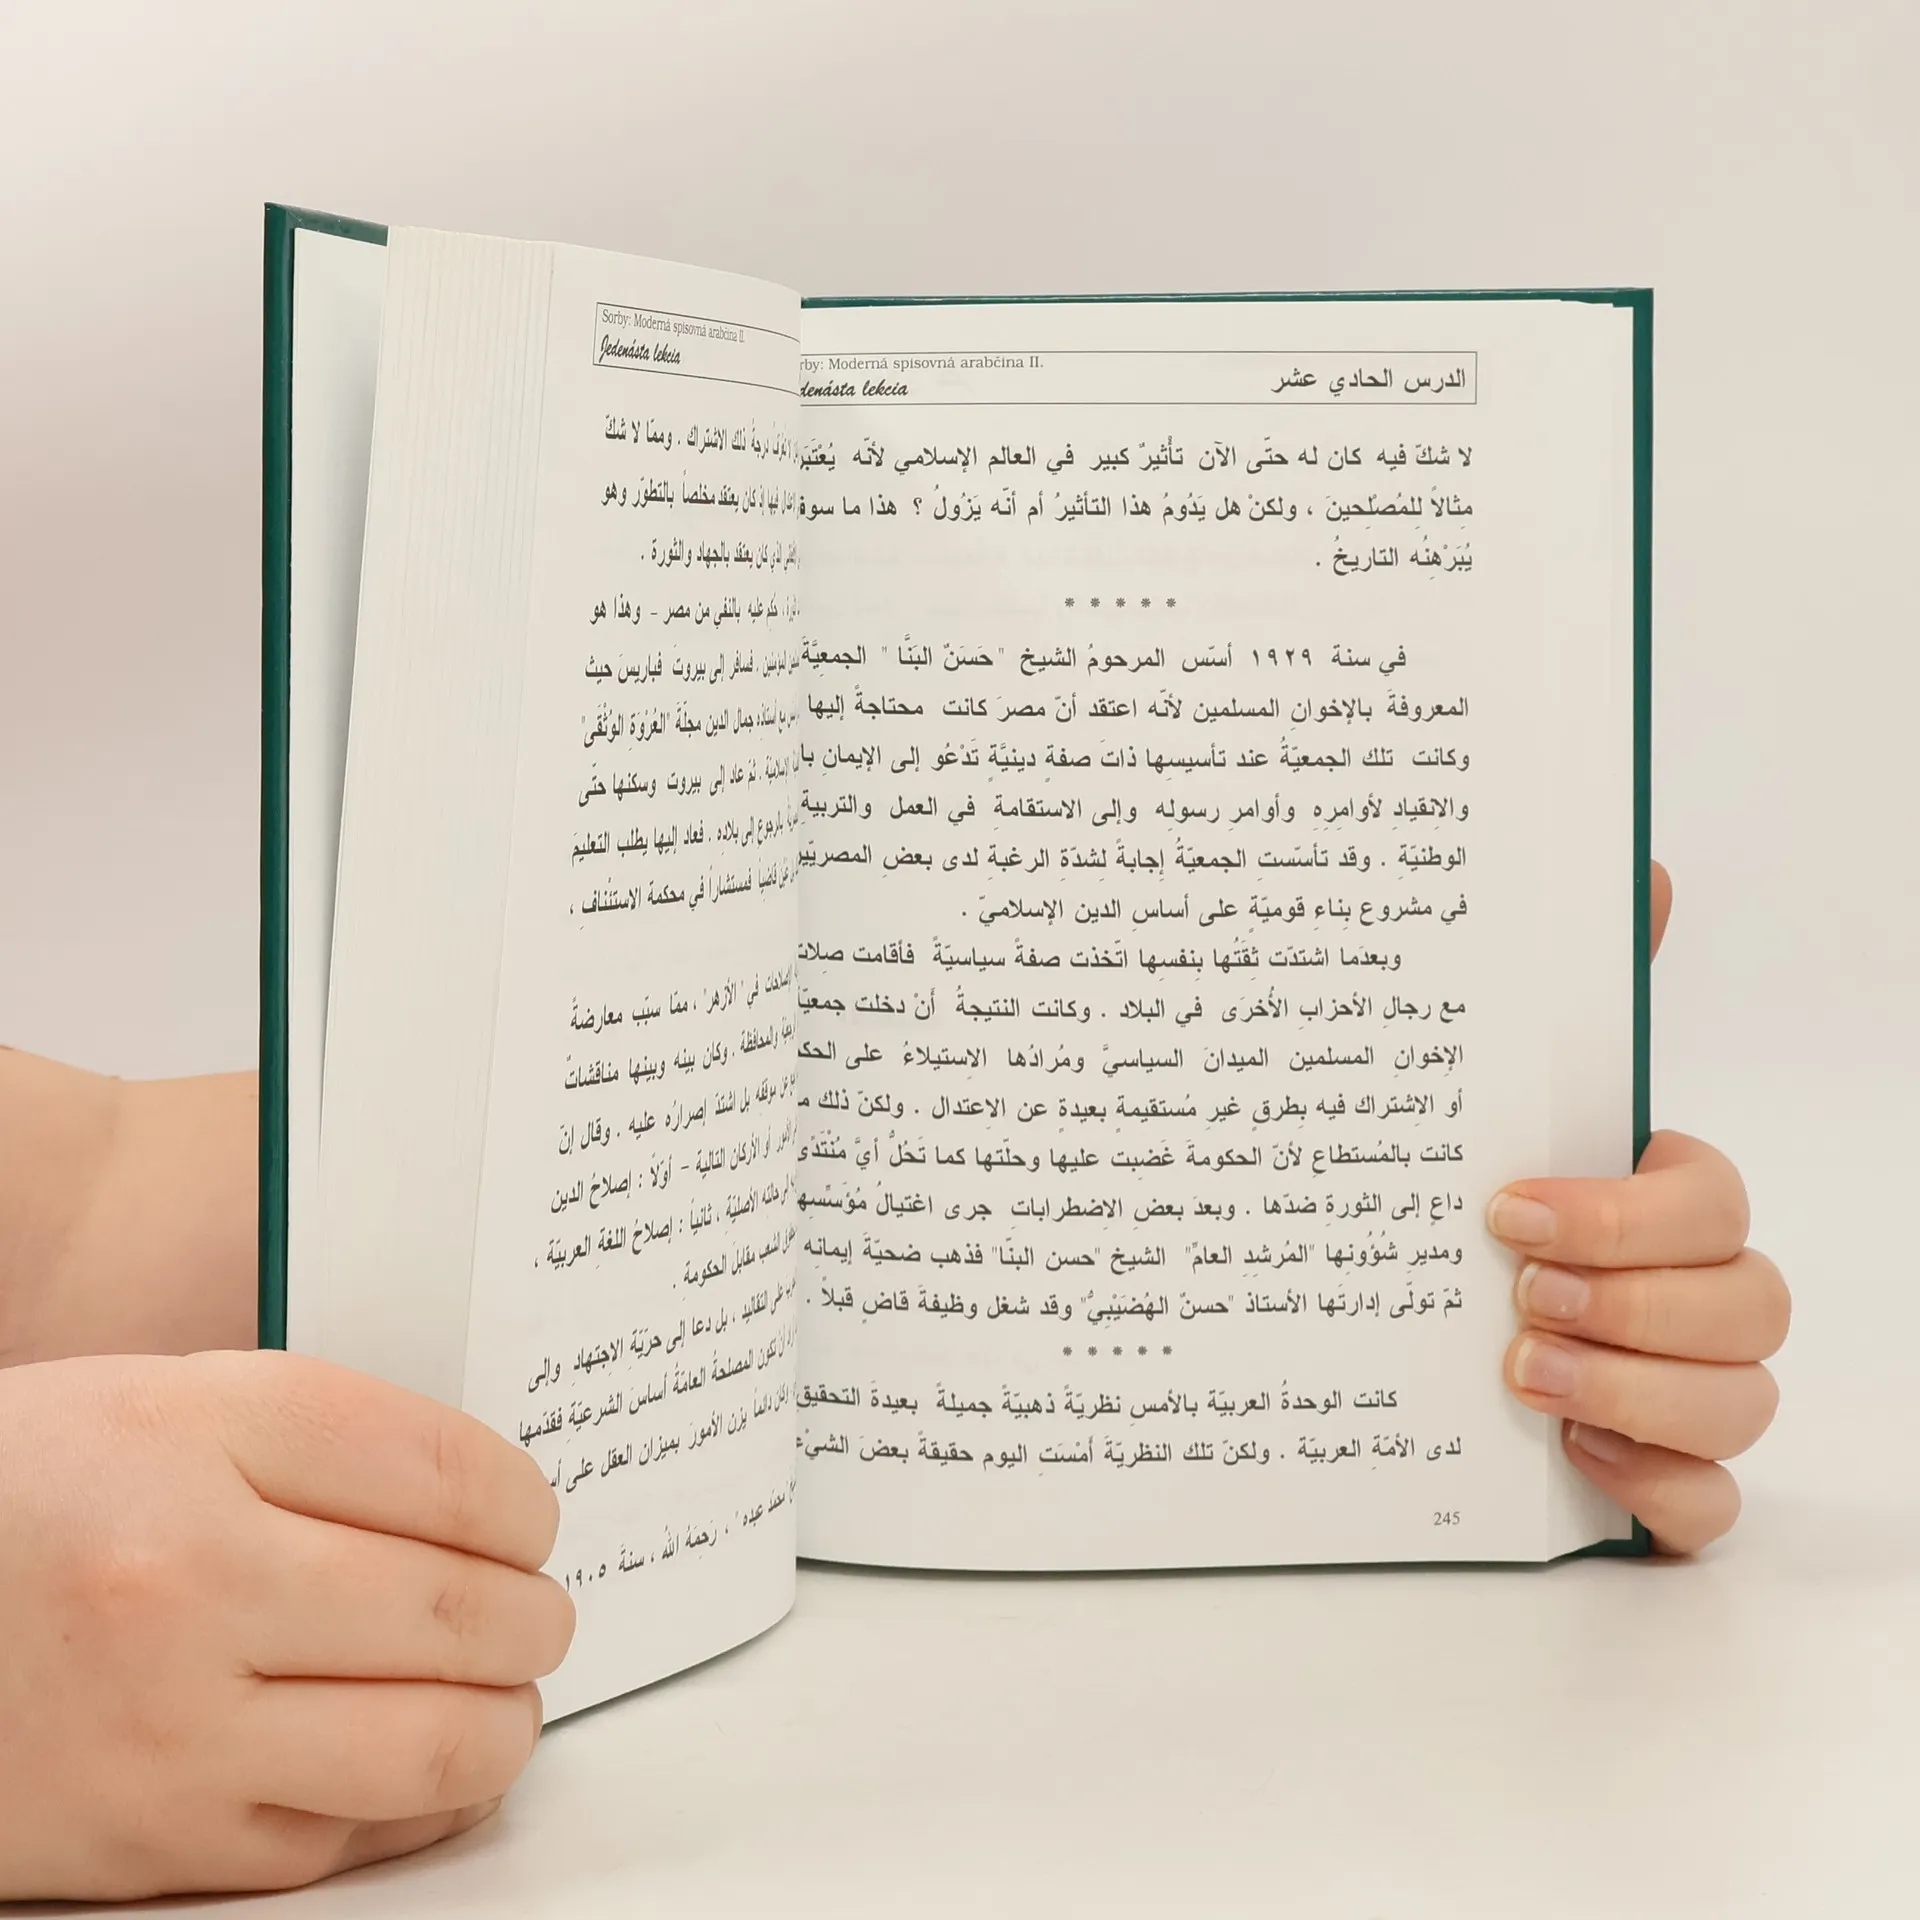 Sorby: Moderná spisovná arabčina II.
Jedenásta lekcia
درجةُ ذلك الاشتراك . وممّا لا شكّ
كان يعتقد مخلصاً بالتطوّر وهو
الذي كان يعتقد بالجهاد والثورة .
حُكِم عليه بالنفي من مصر – وهذا هو
. فسافر إلى بيروتَ فباريسَ حيث
مع أستاذِه جمال الدين مجلّةَ "العُرْوَةِ الوُثْقَى"
الإسلاميّة . ثمّ عاد إلى بيروت وسكنها حتّى
بالرجوع إلى بلادِه . فعاد إليها يطلب التعليمَ
قاضياً فمستشاراً في محكمة الاستئنافِ ،
في "الأزهر" ، ممّا سبّب معارضةً
والمحافظة . وكان بينه وبينها مناقشاتٌ
عن موقفِه بل اشتدّ إصرارُه عليه . وقال إنّ
الأمور أو الأركان التالية – أوّلاً : إصلاحُ الدين
إلى حالته الأصليّةِ ، ثانياً : إصلاحُ اللغةِ العربيّة ،
الشعب مقابلَ الحكومةِ .
على التقاليد ، بل دعا إلى حرّيّةِ الاِجتهادِ وإلى
أن تكون المصلحةُ العامّةُ أساسَ الشرعيّةِ فقدّمها
دائماً يزن الأمورَ بميزان العقل على
محمّد عبده" ، رَحِمَهُ اللهُ ، سنةَ ١٩٠٥
rby: Moderná spisovná arabčina II.
denásta lekcia
الدرس الحادي عشر
لا شكّ فيه كان له حتّى الآن تأْثيرٌ كبير في العالم الإسلامي لأنّه يُعْتَبَر
مِثالاً لِلمُصْلِحينَ ، ولكنْ هل يَدُومُ هذا التأثيرُ أم أنّه يَزُولُ ؟ هذا ما سوف
يُبَرْهِنُه التاريخُ .
* * * * *
في سنة ١٩٢٩ أسّس المرحومُ الشيخ "حَسَنٌ البَنَّا " الجمعيَّةَ
المعروفةَ بالإخوانِ المسلمين لأنّه اعتقد أنّ مصرَ كانت محتاجةً إليها
وكانت تلك الجمعيّةُ عند تأسيسِها ذاتَ صفةٍ دينيَّةٍ تَدْعُو إلى الإيمانِ با
والاِنقيادِ لأوامرِهِ وأوامرِ رسولِه وإلى الاستقامةِ في العمل والتربيةِ
الوطنيّةِ . وقد تأسّستِ الجمعيّةُ إجابةً لِشدّةِ الرغبةِ لدى بعض المصريّين
في مشروع بِناءِ قوميّةٍ على أساسِ الدين الإسلاميّ .
وبعدَما اشتدّت ثِقَتُها بِنفسِها اتّخذت صفةً سياسيّةً فأقامت صِلات
مع رجالِ الأحزابِ الأُخرَى في البلاد . وكانت النتيجةُ أَنْ دخلت جمعيّة
الإخوانِ المسلمين الميدانَ السياسيَّ ومُرادُها الاِستيلاءُ على الحكم
أو الاِشتراك فيه بِطرقٍ غيرِ مُستقيمةٍ بعيدةٍ عن الاِعتدال . ولكنّ ذلك م
كانت بالمُستطاعِ لأنّ الحكومةَ غَضِبت عليها وحلّتها كما تَحُلُّ أيَّ مُنْتَدًى
داعٍ إلى الثورةِ ضدّها . وبعدَ بعضِ الاِضطراباتِ جرى اغتيالُ مُؤَسِّسِها
ومديرِ شُؤُونِها "المُرشِدِ العامِّ" الشيخ "حسن البنّا" فذهب ضحيّةَ إيمانِه
ثمّ تولّى إدارتَها الأستاذ "حسنٌ الهُضَيْبِيُّ" وقد شغل وظيفةَ قاضٍ قبلاً .
* * * * *
كانت الوحدةُ العربيّة بالأمسِ نظريّةً ذهبيّةً جميلةً بعيدةَ التحقيق
لدى الأمّةِ العربيّة . ولكنّ تلك النظريّةَ أَمْسَتِ اليوم حقيقةً بعضَ الشيْء
245